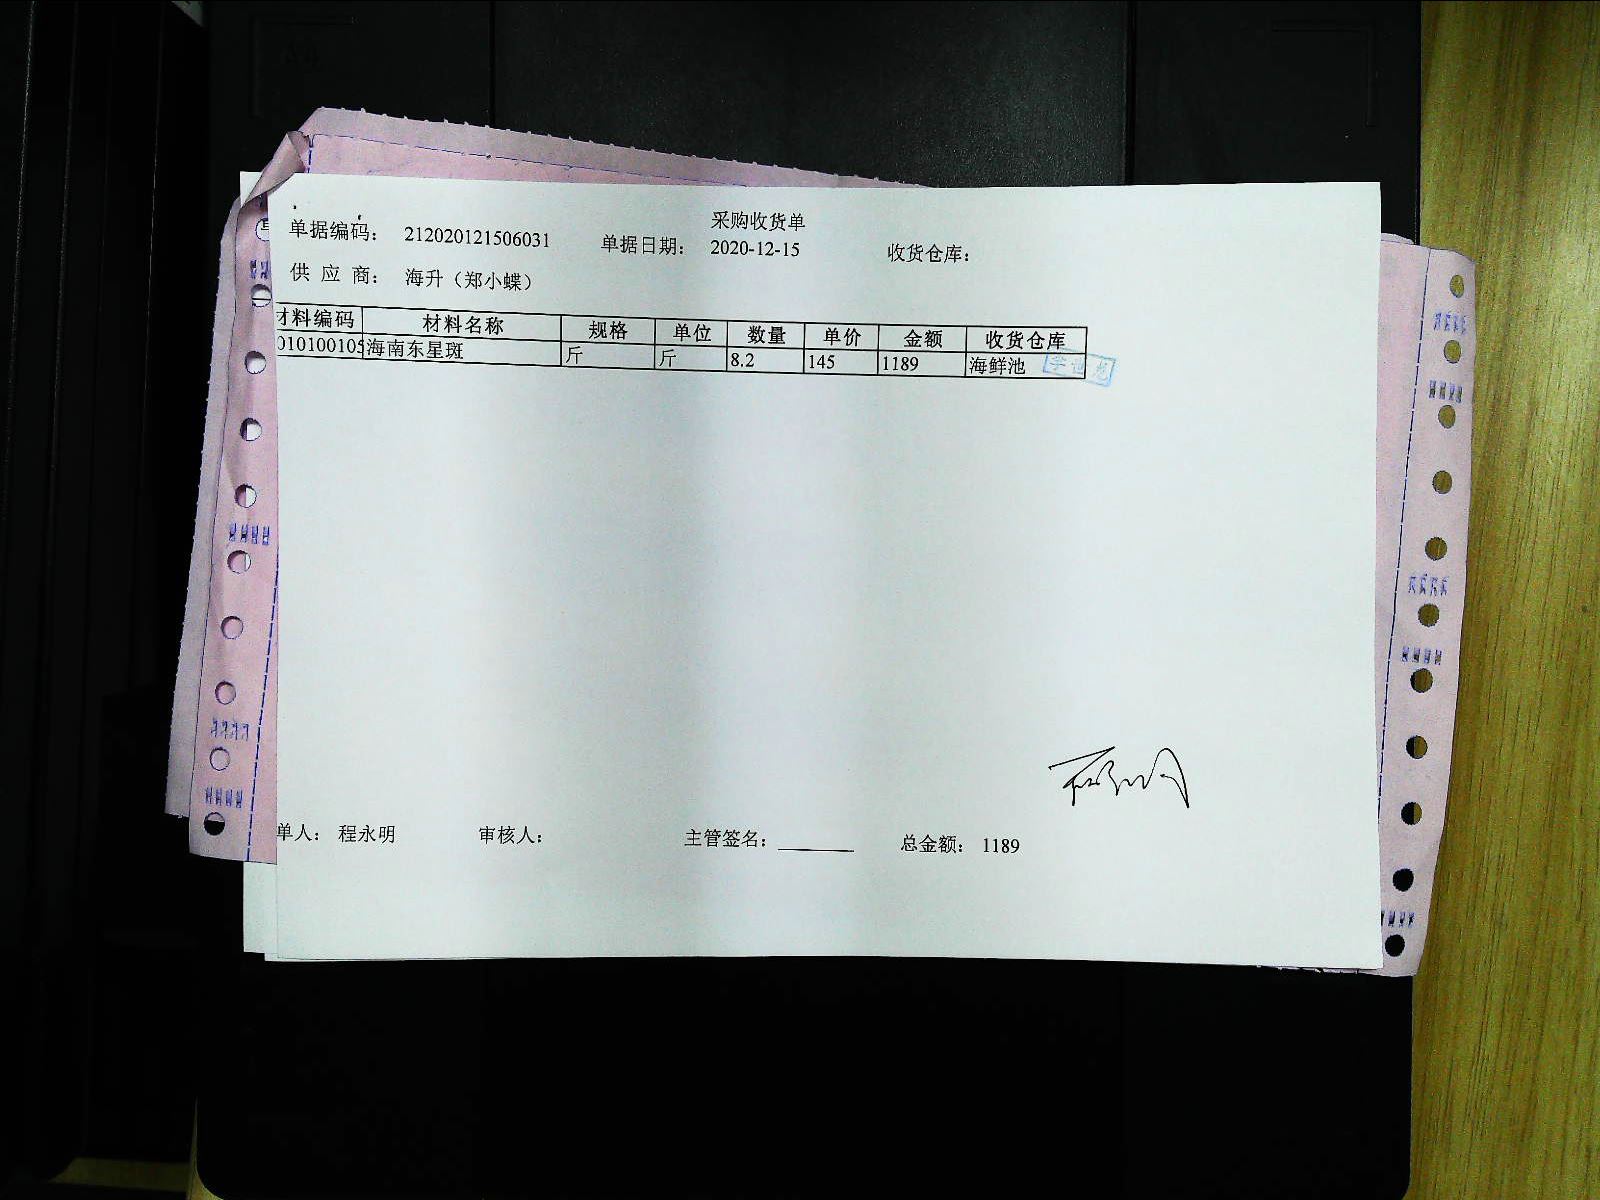 采购收货单
单据编码： 212020121506031 单据日期： 2020-12-15 收货仓库：
供 应 商： 海升（郑小蝶）
材料编码 材料名称 规格 单位 数量 单价 金额 收货仓库
010100105 海南东星斑 斤 斤 8.2 145 1189 海鲜池
单人： 程永明 审核人： 主管签名： 总金额： 1189